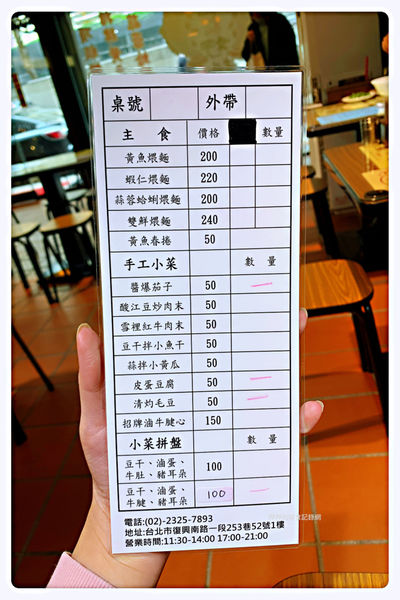 桌號 外帶
主 食 價格 數量
黃魚煨麵 200
蝦仁煨麵 220
蒜蓉蛤蜊煨麵 200
雙鮮煨麵 240
黃魚春捲 50
手工小菜 數 量
醬爆茄子 50 一
酸江豆炒肉末 50
雪裡紅牛肉末 50
豆干拌小魚干 50
蒜拌小黃瓜 50
皮蛋豆腐 50 一
清灼毛豆 50 一
招牌滷牛腱心 150
小菜拼盤 數 量
豆干、滷蛋、
牛肚、豬耳朵 100
豆干、滷蛋、
牛腱、豬耳朵 100 一
電話:(02)-2325-7893
地址:台北市復興南路一段253巷52號1樓
營業時間:11:30-14:00 17:00-21:00